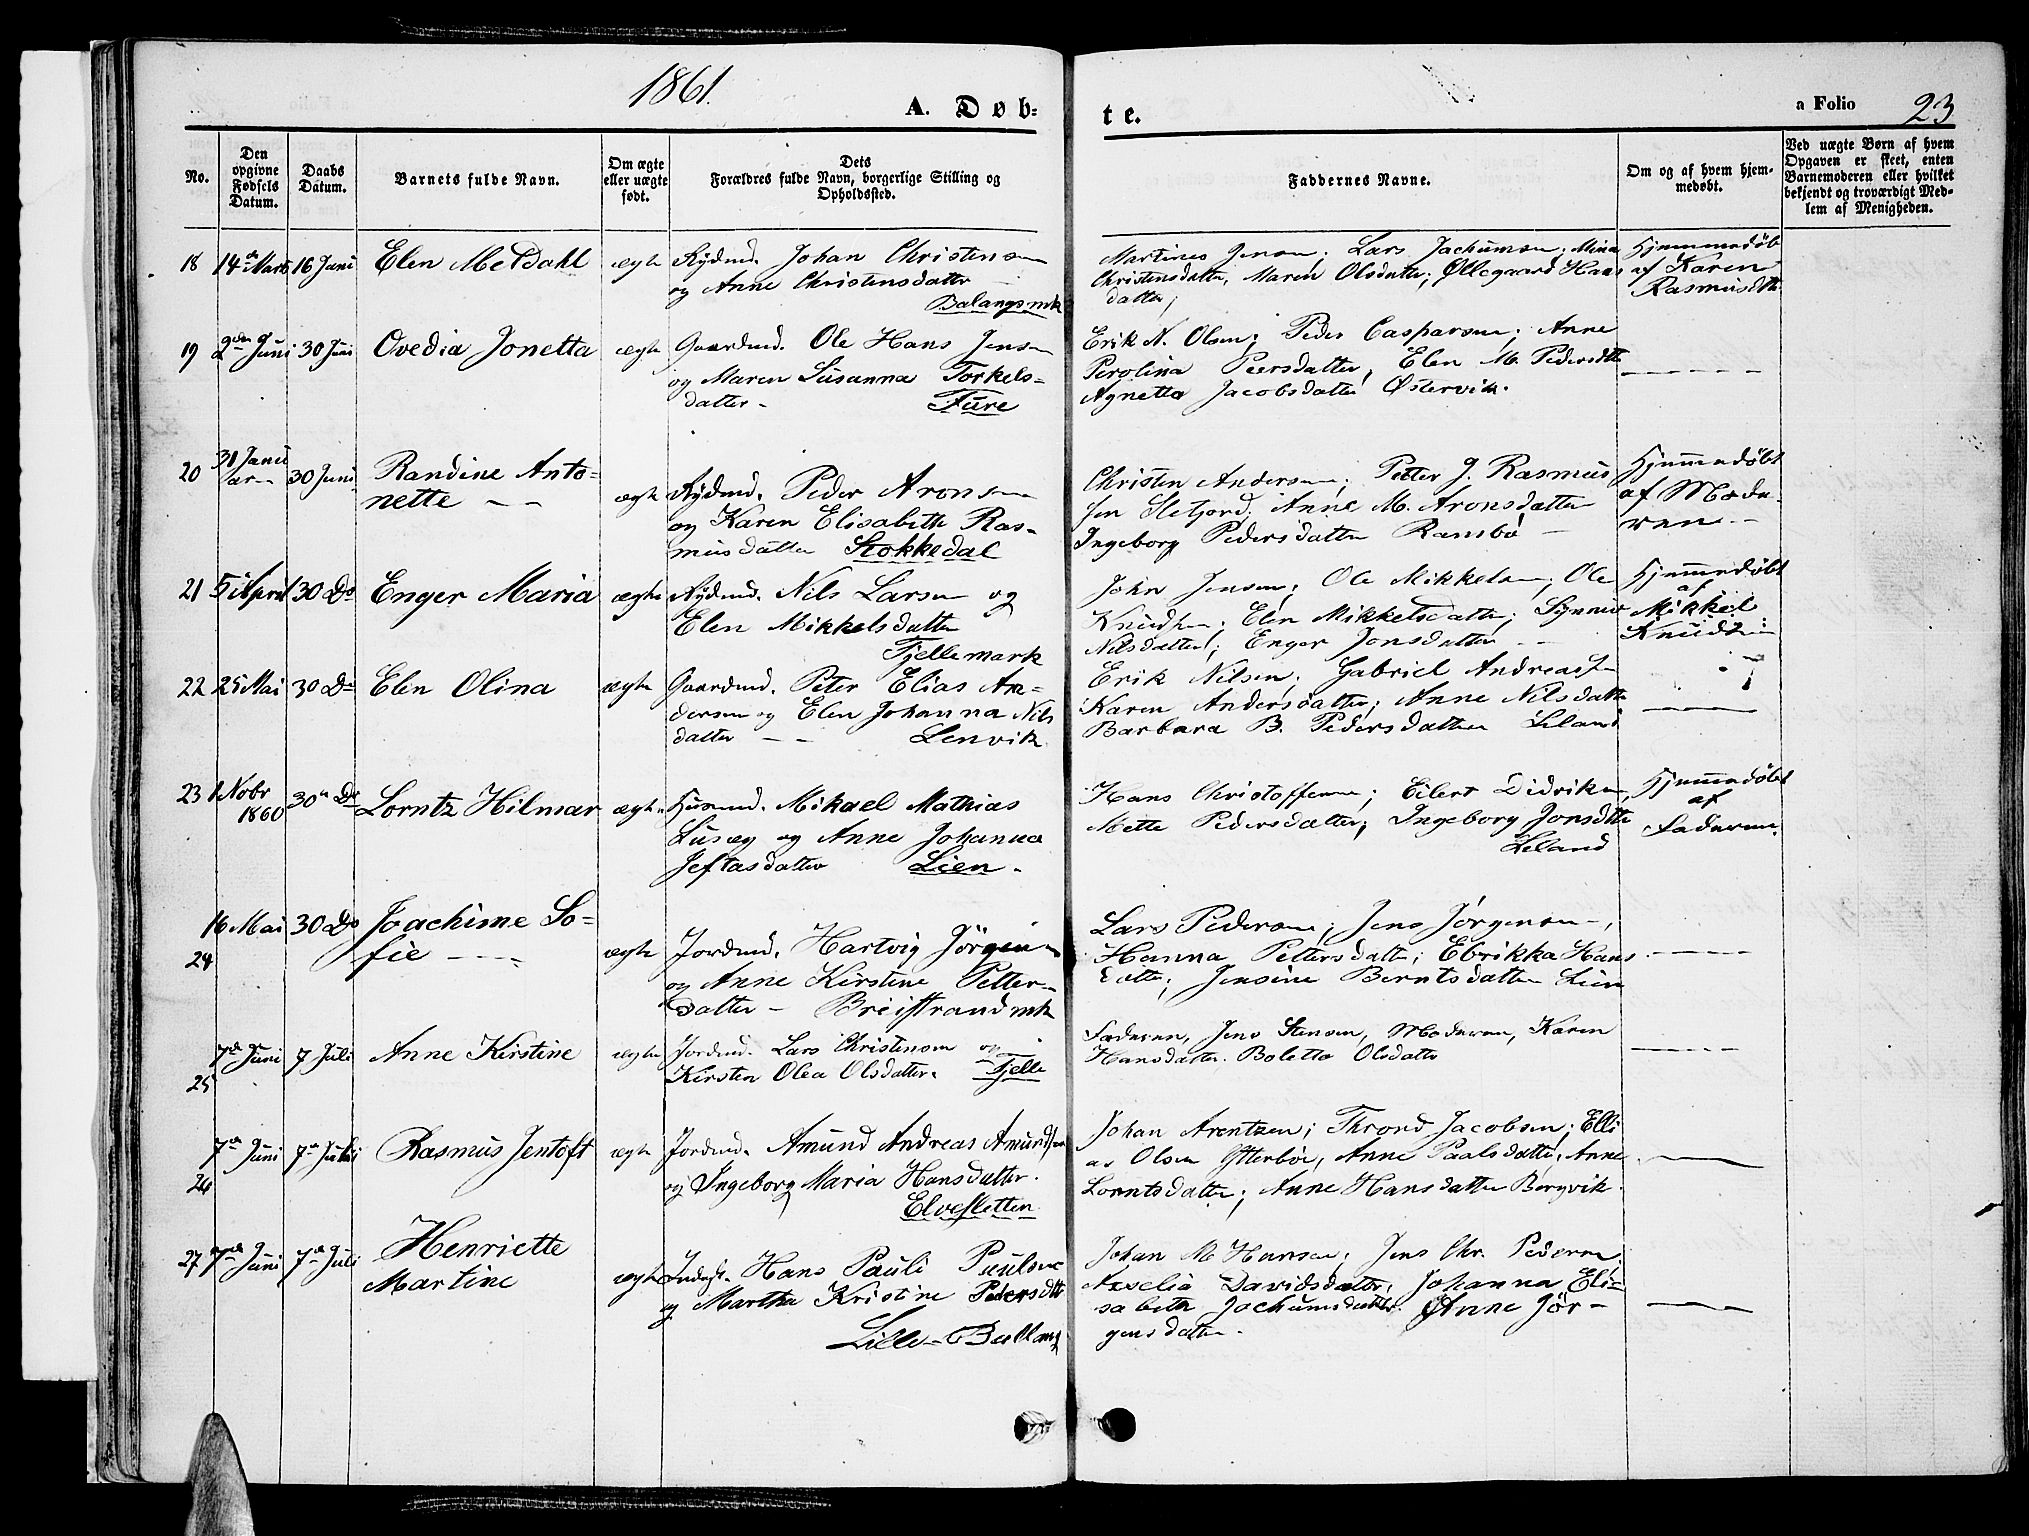 1861.
A. Døb-
te.
a Folio 23
No.
Den opgivne Fødsels Datum.
Daabs Datum.
Barnets fulde Navn.
Om ægte eller uægte født.
Dets Forældres fulde Navn, borgerlige Stilling og Opholdssted.
Faddernes Navne.
Om og af hvem hjem-
medøbt.
Ved uægte Børn af hvem
Opgaven er skeet, enten
Barnemoderen eller hvilket
bekjendt og troværdigt Med-
lem af Menigheden.
18 14de Marts 16 Juni Elen Meldahl ægte Rydmd. Johan Christensen
og Anne Christensdatter
Balangsmk
Martines Jensen; Lars Jachumsen; Mina
Christensdatter, Maren Olsdatter; Øllegaard Hans
datter;
Hjemmedøbt
af Karen
Rasmusdtr
19 2den Juni 30 Juni Ovedia Jonetta ægte Gaardmd. Ole Hans Jensen
og Maren Susanna Torkels-
datter - Fure
Erik N. Olsen; Peder Casparsen; Anne
Perolina Peersdatter, Elen M. Pedersdtr
Agnetta Jacobsdatter Østervik.
20 31 Janu
ar 30 Juni Randine Anto-
nette ægte Rydmd. Peder Aronsen
og Karen Elisabeth Ras-
musdatter Stokkedal
Christen Andersen; Petter J. Rasmus
sen Sletjord; Anne M. Aronsdatter
Ingeborg Pedersdatter Rambø
Hjemmedøbt
af Mode-
ren
21 5 April 30 Do Enger Maria ægte Rydmd. Nils Larsen og
Elen Mikkelsdatter
Fjellemark
John Jensen; Ole Mikkelsen; Ole
Knudsen; Elen Mikkelsdatter; Synniv
Nilsdatter; Enger Jonsdatter
Hjemmedøbt
af
Mikkel
Knudsen
22 25 Mai 30 Do Elen Olina ægte Gaardmd. Peter Elias An-
dersen og Elen Johanna Nils
datter Lenvik
Erik Nilsen; Gabriel Andreassen
Karen Andersdatter; Anne Nilsdatter
Barbara B. Pedersdatter Leland
23 1 Nobr
1860 30 Do Lorntz Hilmar ægte Husmd. Mikael Mathias
Lusæg og Anne Johanna
Jeftasdatter Lien.
Hans Christoffersen; Eilert Didriksen,
Mette Pedersdatter; Ingeborg Jonsdtr
Leland
Hjemmedøbt
af
Faderen.
24 16 Mai 30 Do Joachime So-
fie ægte Jordmd. Hartvig Jörgensen
og Anne Kirstine Petter-
datter - Breistrandmk
Lars Pedersen; Jens Jørgensen,
Hanna Pettersdatter; Ebrikka Hans
datter; Jensine Berntsdatter Lien
25 7de Juni 7 Juli Anne Kirstine ægte Jordmd. Lars Christensen og
Kirsten Olea Olsdatter. Fjelle
Faderen, Jens Stensen, Moderen, Karen
Hansdatter. Boletta Olsdatter
26 7de Juni 7de Juli Rasmus Jentoft ægte Jordmd. Amund Andreas Amundsen
og Ingeborg Maria Hansdatter.
Elvesletten
Johan Arentzen; Thrond Jacobsen; Elli
as Olsen Ytterbøe, Anne Paalsdatter, Anne
Lorntsdatter; Anne Hansdatter Bergvik
27 7de Juni 7de Juli Henriette
Martine ægte Indst. Hans Pauli Paulsen
og Martha Kristine Pedersdtr
Lille-Ballang
Johan M Hansen; Jens Chr. Pedersen
Axelia Davidsdatter; Johanna Eli-
sabeth Jachumsdatter. Anne Jör-
gensdatter.